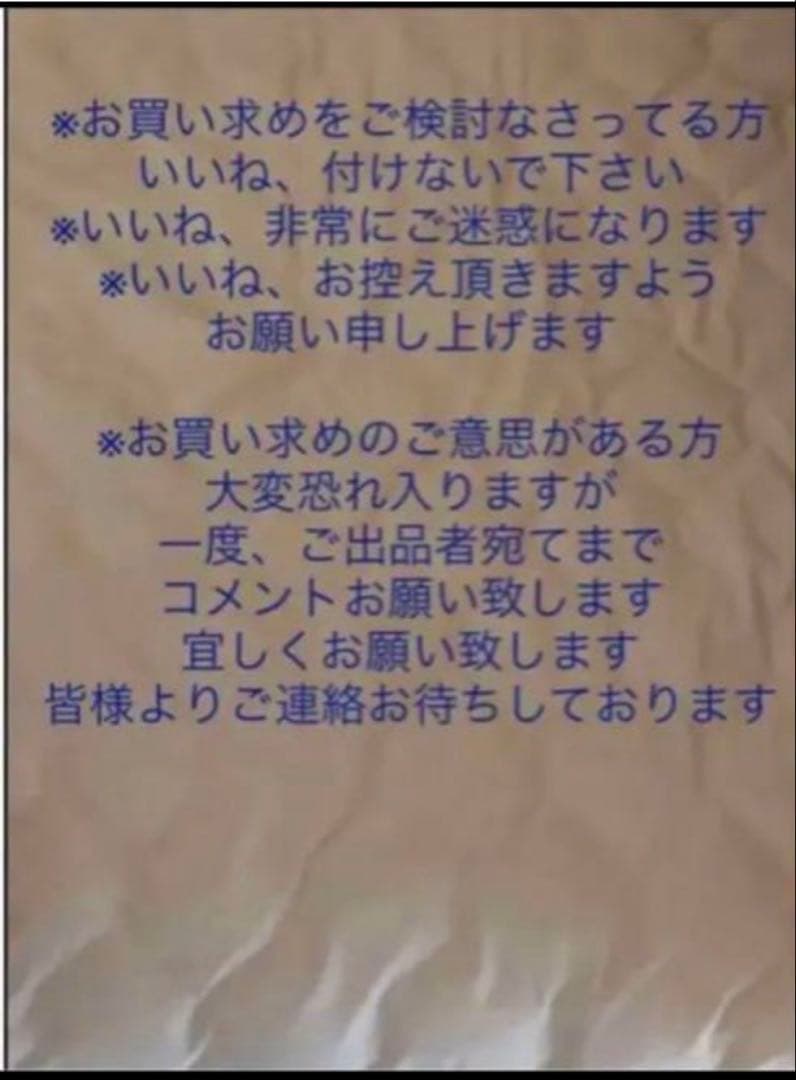 ※お買い求めをご検討なさってる方
いいね、付けないで下さい
※いいね、非常にご迷惑になります
※いいね、お控え頂きますよう
お願い申し上げます
※お買い求めのご意思がある方
大変恐れ入りますが
一度、ご出品者宛てまで
コメントお願い致します
宜しくお願い致します
皆様よりご連絡お待ちしております